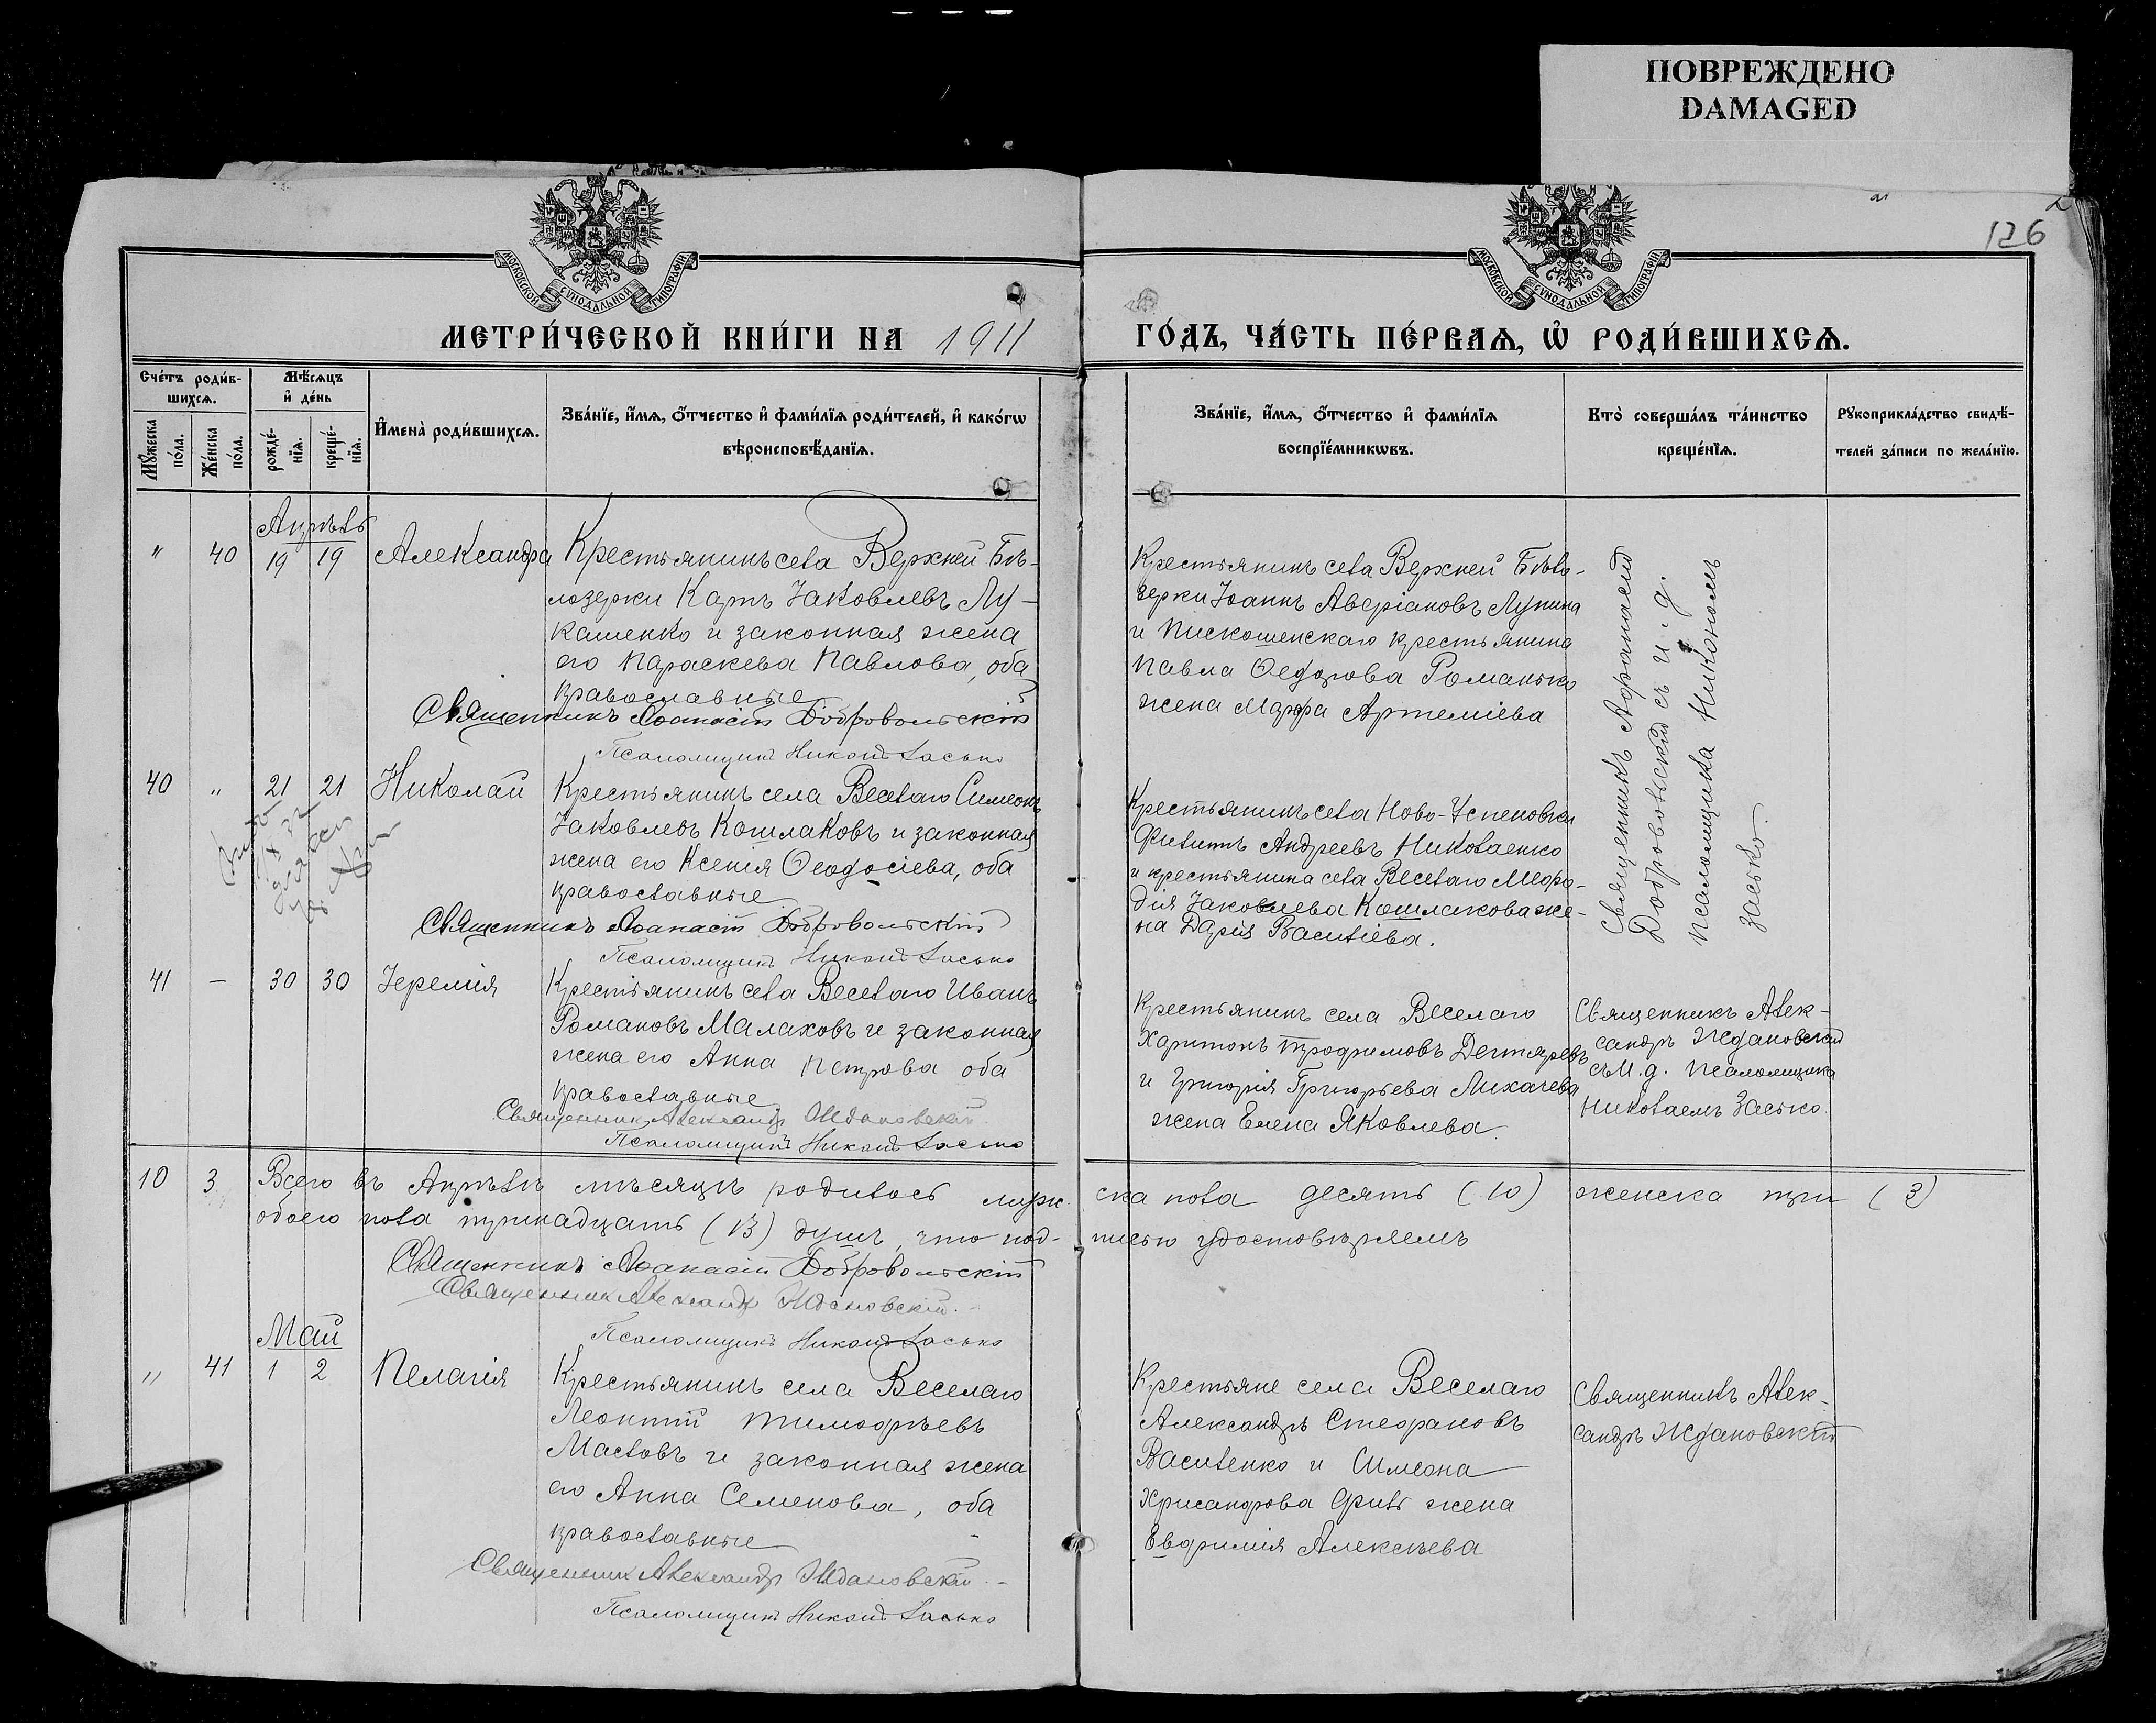 ПОВРЕЖДЕНО
DAMAGED
126
МОСКОВСКОЙ СѴНОДАЛЬНОЙ ТИПОГРАФІИ
МОСКОВСКОЙ СѴНОДАЛЬНОЙ ТИПОГРАФІИ
МЕТРИ́ЧЕСКОЙ КНИ́ГИ НА 1911
ГО́ДЪ, ЧА́СТЬ ПЕ́РВАѦ, Ѡ҆ РОДИ́ВШИХСѦ.
Сче́тъ роди́в-
шихсѧ.
Мѣ́сѧцъ
и҆ де́нь
Мꙋ́жеска
по́ла.
Же́нска
по́ла.
рожде́-
нїѧ.
креще́-
нїѧ.
И҆мена̀ роди́вшихсѧ.
Зва́нїе, и҆́мѧ, ѻ҆́тчество и҆ фами́лїѧ роди́телей, и҆ како́гѡ
вѣроисповѣ́данїѧ.
Зва́нїе, и҆́мѧ, ѻ҆́тчество и҆ фами́лїѧ
воспрїе́мникѡвъ.
Кто̀ соверша́лъ та́инство
креще́нїѧ.
Рꙋкоприкла́дство свидѣ́-
телей за́писи по жела́нїю.
Апрѣль
" 40 19 19 Александра
Крестьянинъ села Верхней Бѣ-
лозерки Карпъ Іаковлевъ Лу-
кашенко и законная жена
его Параскева Павлова, оба
православные
Священникъ Аѳанасій Добровольскій
Псаломщикъ Никонъ Засько
Крестьянинъ села Верхней Бѣло-
зерки Іоаннъ Аверіановъ Лунина
и Пискошенскаго крестьянина
Павла Ѳеодорова Романько
жена Марфа Артеміева
Священникъ Афанасій
Добровольскій съ и. д.
псаломщика Никономъ
Засько.
40 " 21 21 Николай
Крестьянинъ села Веселаго Симеонъ
Іаковлевъ Кошлаковъ и законная
жена его Ксенія Ѳеодосіева, оба
православные
Священникъ Аѳанасій Добровольскій
Псаломщикъ Никонъ Засько
Крестьянинъ села Ново-Успеновки
Филиппъ Андреевъ Николаенко
и крестьянина села Веселаго Мефо-
дія Іаковлева Кошлакова же-
на Дарія Василіева.
41 - 30 30 Іеремія
Крестьянинъ села Веселаго Иванъ
Романовъ Малаховъ и законная
жена его Анна Петрова оба
православные
Священникъ Александръ Ждановскій
Псаломщикъ Никонъ Засько
Крестьянинъ села Веселаго
Харитонъ Трофимовъ Дегтяревъ
и Григорія Григорьева Лихачева
жена Елена Яковлева.
Священникъ Алек-
сандръ Ждановскій
съ И. д. псаломщика
Николаемъ Засько.
10 3 Всего въ Апрѣлѣ мѣсяцѣ родилось муж. ска пола десять (10) женска три (3)
обоего пола тринадцать (13) душъ, что под- писью удостовѣряемъ
Священникъ Аѳанасій Добровольскій
Священникъ Александръ Ждановскій.
Псаломщикъ Никонъ Засько
Май
" 41 1 2 Пелагія
Крестьянинъ села Веселаго
Леонтій Тимофѣевъ
Масловъ и законная жена
его Анна Семенова, оба
православные
Священникъ Александръ Ждановскій
Псаломщикъ Никонъ Засько
Крестьяне села Веселаго
Александръ Стефановъ
Василенко и Симеона
Хрисанфова Филь жена
Евфимія Алексѣева
Священникъ Алек-
сандръ Ждановскій